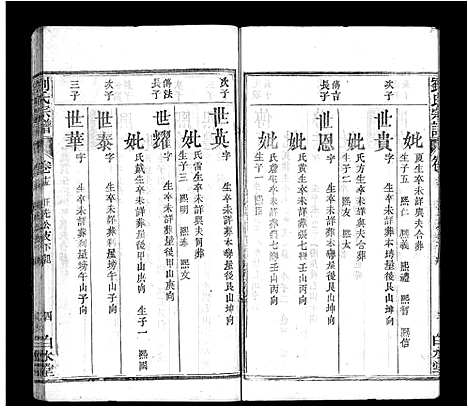 劉氏宗譜
妣 夏氏 生卒未詳與夫合葬
生子五 熙仁 熙義 熙禮 熙智 熙信
世貴 字 生卒未詳葬本塆屋後艮山坤向
妣 方氏 生卒未詳與夫合葬
生子二 熙友 熙太
傳吉長子 世恩 字 生卒未詳葬張七塆後壬山丙向
妣 詹氏 生卒未詳葬張七塆壬山丙向
次子 世英 字 生卒未詳葬本塆屋後艮山坤向
妣 雷氏 生卒未詳與夫同葬
生子三 熙明 熙春 熙文
傳法長子 世耀 字 生卒未詳葬屋後甲山庚向
妣 戴氏 生卒未詳葬屋後甲山庚向 生子一 熙國
次子 世泰 字 生卒未詳葬屋塝午山子向
三子 世華 字 生卒未詳葬列屋塝午山子向
劉氏宗譜 卷 四 白水堂